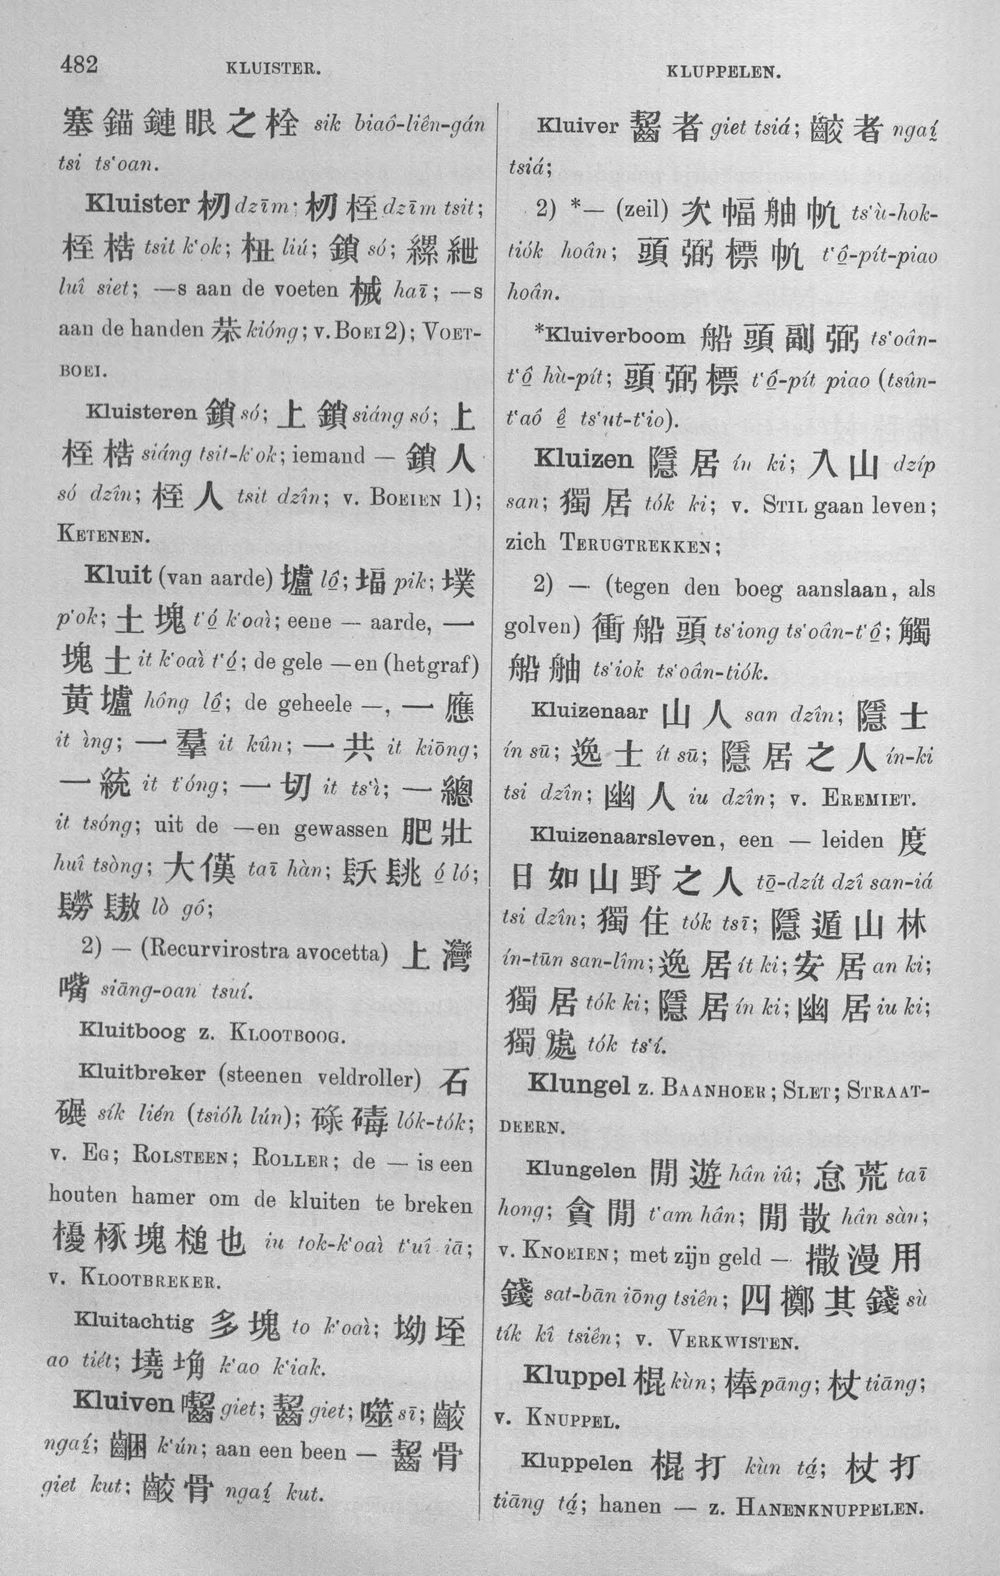 482
KLUISTER.
KLUPPELEN.
塞錨鏈眼之栓 sik biaô-liên-gán
tsi ts‘oan.
Kluister 杒 dzīm; 杒桎 dzīm tsit;
桎梏 tsit k‘ok; 杻 liú; 鎖 só; 縲紲
luî siet; —s aan de voeten 械 haī; —s
aan de handen 㭟 kióng; v. BOEI 2); VOET-
BOEI.
Kluisteren 鎖 só; 上鎖 siáng só; 上
桎梏 siáng tsit-k‘ok; iemand — 鎖人
só dzîn; 桎人 tsit dzîn; v. BOEIEN 1);
KETENEN.
Kluit (van aarde) 壚 lô̤; 堛 pik; 墣
p‘ok; 土塊 t‘ó̤ k‘oaì; eene — aarde, 一
塊土 it k‘oaì t‘ó̤; de gele —en (het graf)
黃壚 hông lô̤; de geheele —, 一應
it ìng; 一羣 it kûn; 一共 it kiōng;
一統 it t‘óng; 一切 it ts‘ì; 一總
it tsóng; uit de —en gewassen 肥壯
huî tsòng; 大僕 taī hàn; 镺𨱴 ó̤ ló;
髝𩥊 lò gô;
2) — (Recurvirostra avocetta) 上灣
嘴 siāng-oan tsuí.
Kluitboog z. KLOOTBOOG.
Kluitbreker (steenen veldroller) 石
碾 sík lién (tsióh lún); 碌碡 lók-tók;
v. EG; ROLSTEEN; ROLLER; de — is een
houten hamer om de kluiten te breken
櫌椓塊槌也 iu tok-k‘oaì t‘uî iā;
v. KLOOTBREKER.
Kluitachtig 多塊 to k‘oaì; 坳垤
ao tiét; 墝埆 k‘ao k‘iak.
Kluiven 囓 giet; 齧 giet; 噬 sī; 齩
ngaí̤; 齫 k‘ún; aan een been — 齧骨
giet kut; 齩骨 ngaí̤ kut.
Kluiver 齧者 giet tsiá; 齩者 ngaí̤
tsiá;
2) *— (zeil) 次幅舳帆 ts‘ù-hok-
tiók hoân; 頭弼標帆 t‘ô̤-pít-piao
hoân.
*Kluiverboom 船頭副弼 ts‘oân-
t‘ô̤ hù-pít; 頭弼標 t‘ô̤-pít piao (tsûn-
t‘aô ê̤ ts‘ut-t‘io).
Kluizen 隱居 ín ki; 入山 dzíp
san; 獨居 tók ki; v. STIL gaan leven;
zich TERUGTREKKEN;
2) — (tegen den boeg aanslaan, als
golven) 衝船頭 ts‘iong ts‘oân-t‘ô̤; 觸
船舳 ts‘iok ts‘oân-tiók.
Kluizenaar 山人 san dzîn; 隱士
ín sū; 逸士 ít sū; 隱居之人 ín-ki
tsi dzîn; 幽人 iu dzîn; v. EREMIET.
Kluizenaarsleven, een — leiden 度
日如山野之人 tō̤-dzít dzî san-iá
tsi dzîn; 獨住 tók tsī; 隱遁山林
ín-tūn san-lîm; 逸居 ít ki; 安居 an ki;
獨居 tók ki; 隱居 ín ki; 幽居 iu ki;
獨處 tók ts‘í.
Klungel z. BAANHOER; SLET; STRAAT-
DEERN.
Klungelen 閒遊 hân iû; 怠荒 taī
hong; 貪閒 t‘am hân; 閒散 hân sàn;
v. KNOEIEN; met zijn geld — 撒漫用
錢 sat-bān iōng tsiên; 四擲其錢 sù
tík kî tsiên; v. VERKWISTEN.
Kluppel 棍 kùn; 棒 pāng; 杖 tiāng;
v. KNUPPEL.
Kluppelen 棍打 kùn tá̤; 杖打
tiāng tá̤; hanen — z. HANENKNUPPELEN.